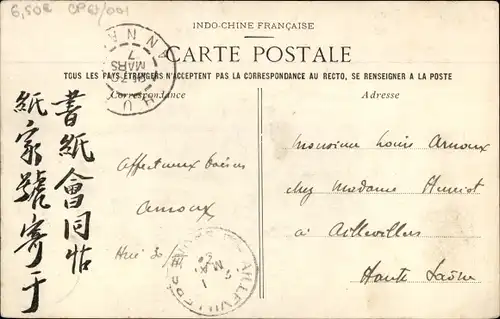 6,50E CP67/001
INDO-CHINE FRANÇAISE
CARTE POSTALE
TOUS LES PAYS ÉTRANGERS N'ACCEPTENT PAS LA CORRESPONDANCE AU RECTO, SE RENSEIGNER A LA POSTE
Correspondance
Adresse
HUE
ANNAM
MARS
書紙會同帖
紙家號寄于
Affectueux baisers
Arnoux
Hué 30
Monsieur Louis Arnoux
chez Madame Henriot
à Aillevillers
Haute Saône
AILLEVILLERS